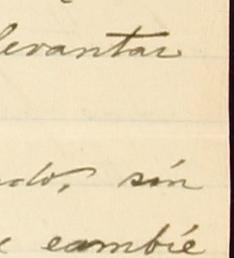 levantar
ndo, sin
e cambié